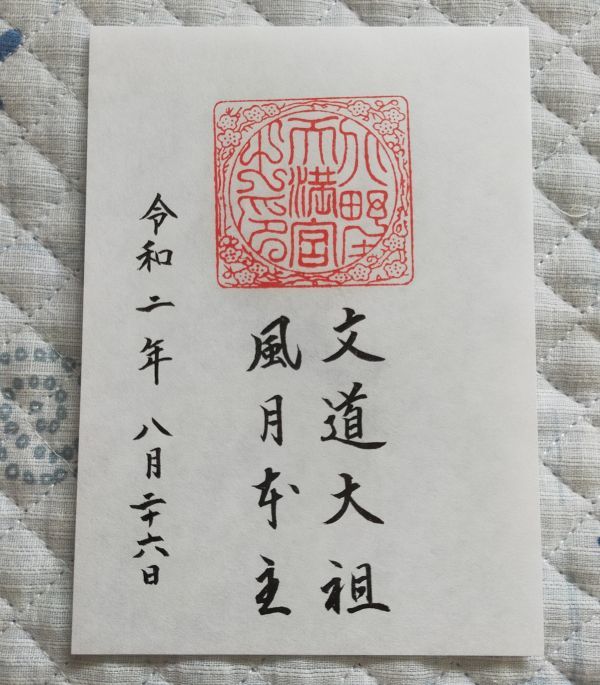 天満宮
之印
文道大祖
風月本主
令和二年 八月二十六日